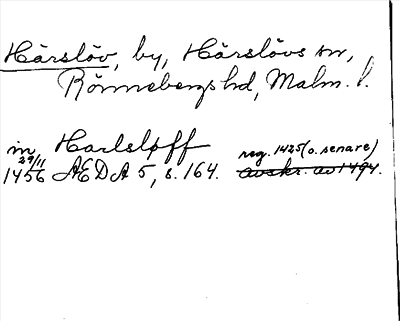 Hårslöv, by, Hårslövs sn,
Rönnebergs hd, Malm. l.
in Harlsløff
29/11 reg. 1425 (o. senare)
1456 ÆDA 5, s. 164. avskr. av 1494.